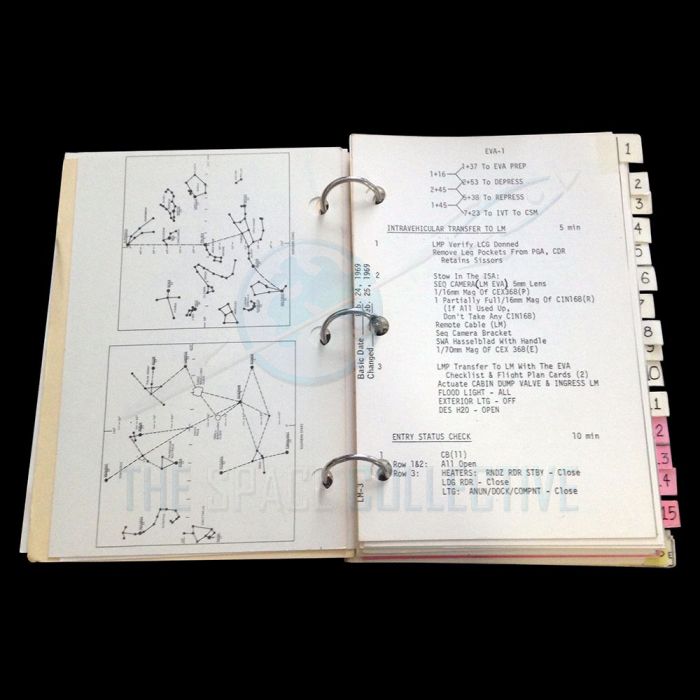 EVA-1
1+37 To EVA PREP
1+16
2+53 To DEPRESS
2+45
5+38 To REPRESS
1+45
7+23 To IVT To CSM
INTRAVEHICULAR TRANSFER TO LM 5 min
1 LMP Verify LCG Donned
Remove Leg Pockets From PGA, CDR
Retains Sissors
2 Stow In The ISA:
SEQ CAMERA(LM EVA) 5mm Lens
1/16mm Mag Of CEX368(P)
1 Partially Full/16mm Mag Of CIN168(R)
(If All Used Up,
Don't Take Any CIN168)
Remote Cable (LM)
Seq Camera Bracket
SWA Hasselblad With Handle
1/70mm Mag Of CEX 368(E)
3 LMP Transfer To LM With The EVA
Checklist & Flight Plan Cards (2)
Actuate CABIN DUMP VALVE & INGRESS LM
FLOOD LIGHT - ALL
EXTERIOR LTG - OFF
DES H2O - OPEN
ENTRY STATUS CHECK 10 min
1 CB(11)
Row 1&2: All Open
Row 3: HEATERS: RNDZ RDR STBY - Close
LDG RDR - Close
LTG: ANUN/DOCK/COMPNT - Close
LM-3
Basic Date 24, 1969
Changed 25, 1969
1
2
3
5
6
7
8
9
10
1
2
3
14
15
THE SPACE COLLECTIVE